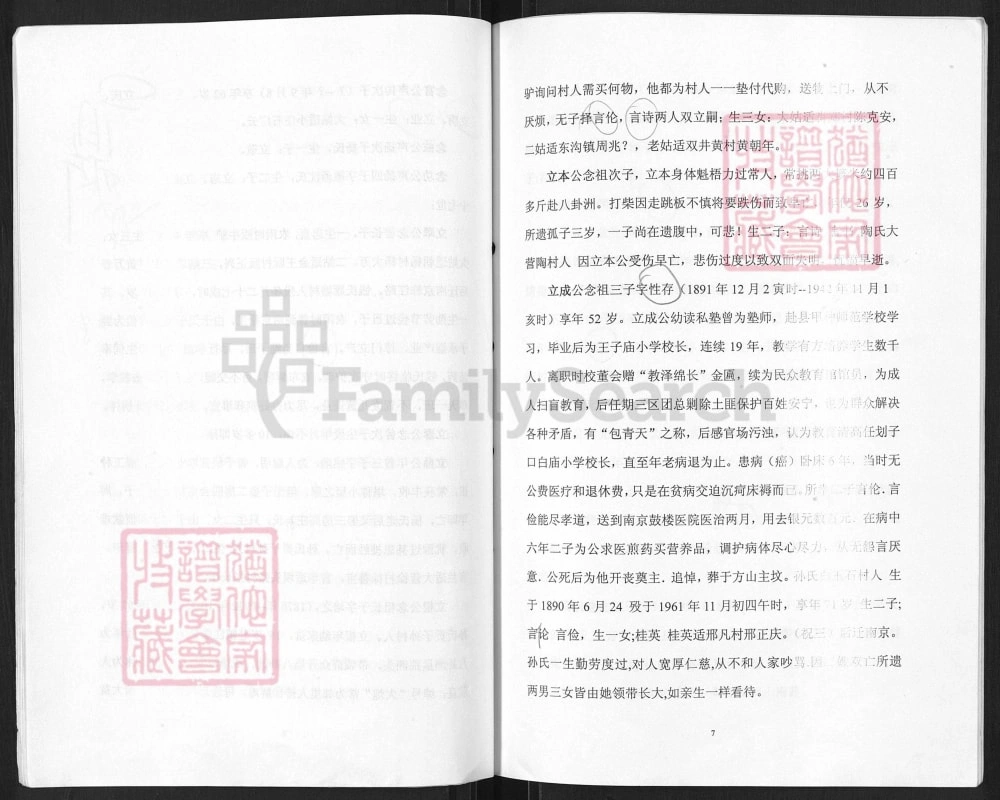 驴询问村人需买何物，他都为村人一一垫付代购，送 门，从不
厌烦，无子择言伦，言诗两人双立嗣；生三女：大姑适 陈克安，
二姑适东沟镇周兆？，老姑适双井黄村黄朝年。
立本公念祖次子，立本身体魁梧力过常人，常挑 约四百
多斤赴八卦洲。打柴因走跳板不慎将要跌伤而致 26 岁，
所遗孤子三岁，一子尚在遗腹中，可悲！生二子：言 陶氏大
营陶村人 因立本公受伤早亡，悲伤过度以致双面失明 早逝。
立成公念祖三子字性存（1891 年 12 月 2 寅时--1942 年 11 月 1
亥时）享年 52 岁。立成公幼读私塾曾为塾师，赴县甲 师范学校学
习，毕业后为王子庙小学校长，连续 19 年，教学有方培养学生数千
人。离职时校董会赠“教泽绵长”金匾，续为民众教育馆馆员，为成
人扫盲教育，后任期三区团总剿除土匪保护百姓安宁，也为群众解决
各种矛盾，有“包青天”之称，后感官场污浊，认为教育清高任划子
口白庙小学校长，直至年老病退为止。患病（癌）卧床 6 年，当时无
公费医疗和退休费，只是在贫病交迫沉疴床褥而已。所生二子言伦．言
俭能尽孝道，送到南京鼓楼医院医治两月，用去银元数百元，在病中
六年二子为公求医煎药买营养品，调护病体尽心尽力，从无怨言厌
意．公死后为他开丧奠主．追悼，葬于方山主坟。孙氏 石村人 生
于 1890 年 6 月 24 殁于 1961 年 11 月初四午时，享年 71 岁 生二子；
言伦 言俭，生一女；桂英 桂英适邢凡村邢正庆。（祝三）后迁南京。
孙氏一生勤劳度过，对人宽厚仁慈，从不和人家吵骂 因 双亡所遗
两男三女皆由她领带长大，如亲生一样看待。
7
FamilySearch